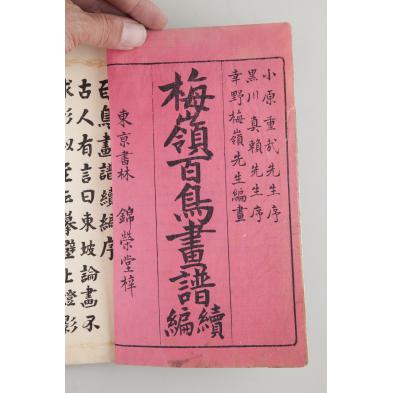 小原重哉先生序
黒川真頼先生序
幸野梅嶺先生編畫
梅嶺百鳥畫譜
續編
東京書林 錦榮堂梓
百鳥畫譜續編序
古人有言曰東坡論畫不